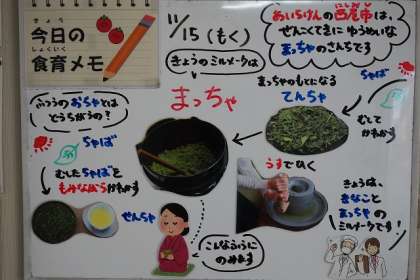 きょう
今日の
しょくいく
食育メモ
11/15(もく)
きょうのミルメークは
まっちゃ
あいちけんの西尾市は、
にしおし
ぜんこくてきにゆうめいな
まっちゃのさんちです
まっちゃのもとになる
てんちゃ
ちゃば
むして
かわかす
うすでひく
ふつうのおちゃとは
どうちがうの?
ちゃば
むしたちゃばを
もみながらかわかす
せんちゃ
こんなふうに
のみます
きょうは、
きなこと
まっちゃの
ミルメークです!